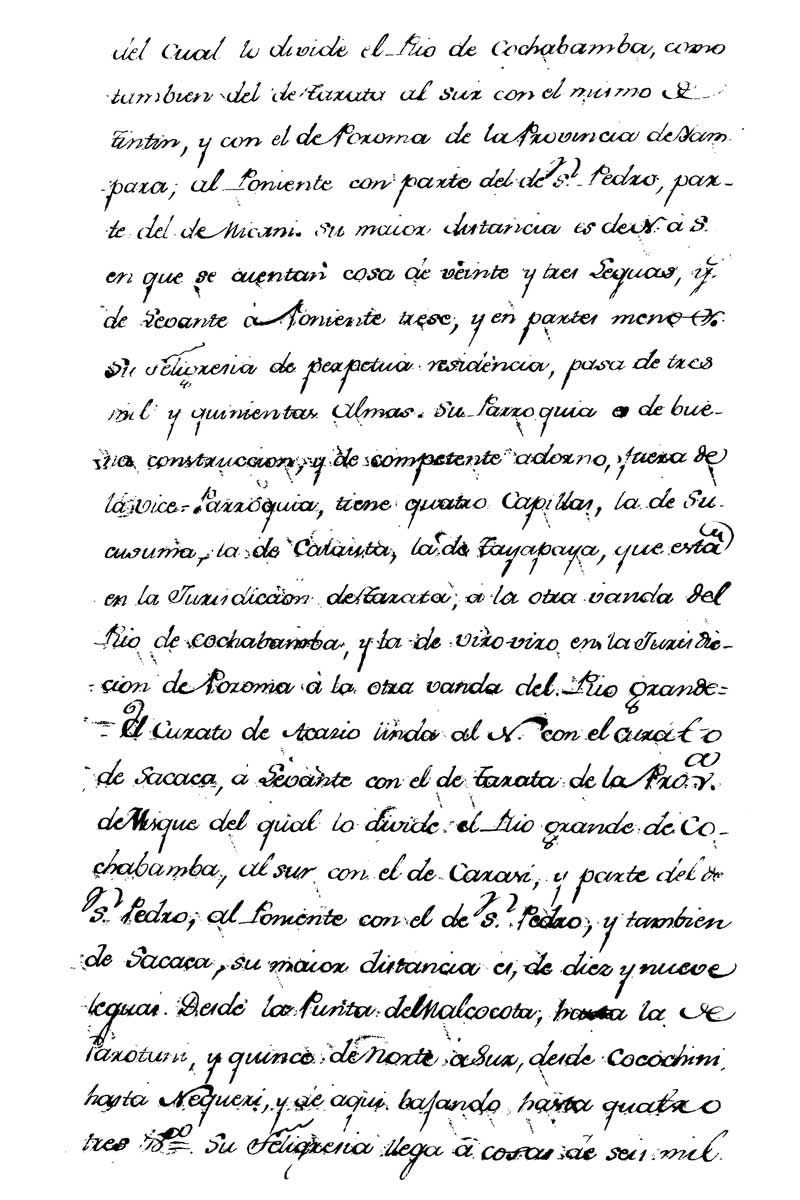 del Cual lo divide el Rio de Cochabamba, como
tambien del de Tarata al sur con el mismo de
Tintin, y con el de Poroma de la Provincia de Yam
para; al Poniente con parte del de Sn. Pedro, par-
te del de Micani. Su maior distancia es de N. à S.
en que se cuentan cosa de veinte y tres Leguas, y
de Levante à Poniente trese, y en partes menos.
Su Feligresia de perpetua residencia, pasa de tres
mil y quinientas Almas. Su Parroquia es de bue-
na construccion, y de competente adorno, fuera de
la Vice=Parroquia, tiene quatro Capillas, la de Su-
cusuma, la de Calauta, la de Tayapaya, que està
en la Jurisdiccion de Tarata, a la otra vanda del
Rio de Cochabamba, y la de viroviro en la Jurisdic-
cion de Poroma à la otra vanda del Rio grande=
= El Curato de Acasio linda al N. con el curato
de Sacaca, à Levante con el de Tarata de la Prova.
de Misque del qual lo divide el Rio grande de Co-
chabamba, al sur con el de Carasi, y parte del de
Sn. Pedro, al Poniente con el de Sn. Pedro, y tambien
de Sacaca, su maior distancia es, de diez y nueve
leguas. Desde la Punta de Malcocota, hasta la de
Parotuni, y quince de Norte à Sur, desde Cocochini
hasta Nequeri, y de aqui bajando hasta quatro
tres Su Feligresia llega à cosas de seis mil